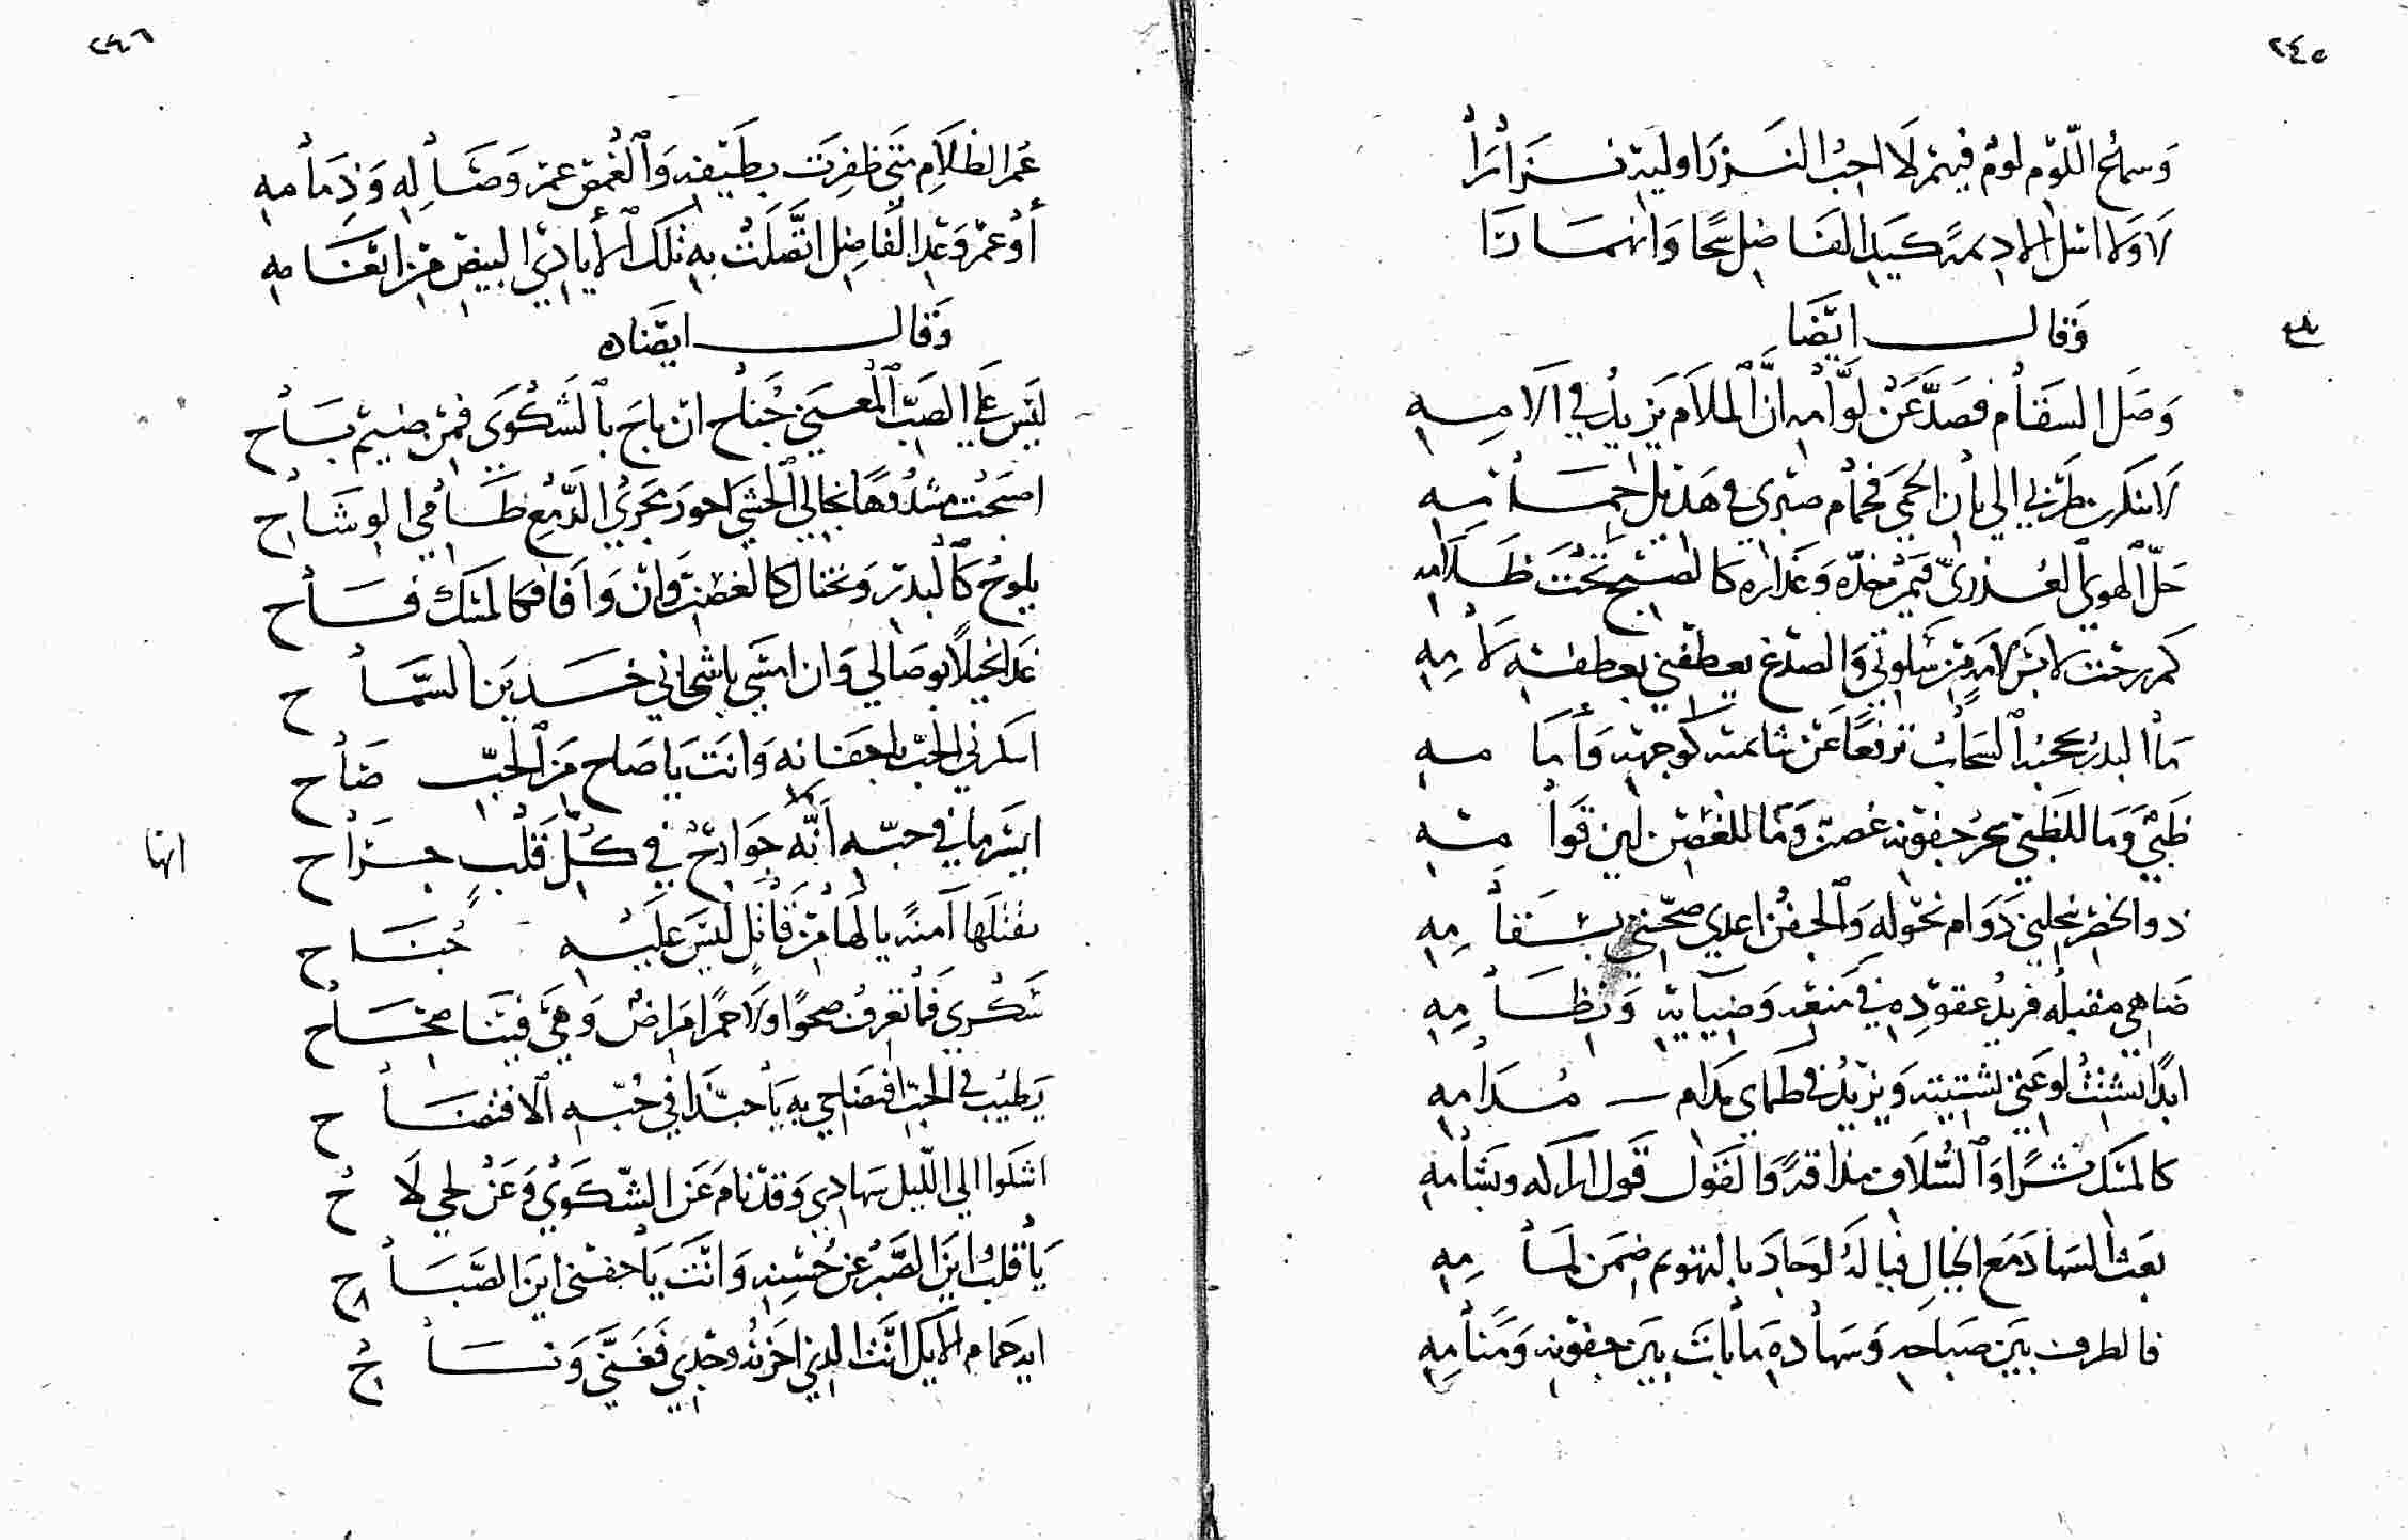 ٢٤٥
وَسَمْحُ اللّوْم لومٌ فيهمْ لَا احبُ النَزرَ اوليْهِ نزَارَا
لَا وَلَا انْلَ الا دِيمَةً كيَدِ الفَاضِل سَحّا وَانهمَارَا
وَقال ايْضَا
بلغ
وَصَلَ السقَام فصَدَّ عَنْ لوَّامه انَّ الملاَم يَزيدُ في آلامِهِ
لَا تنكرن طرَبي الى بان الحمى فحمَام صبْري في هَديْل حمَامِهِ
حَلّ الهوى العُذريّ قمَرٌ خدّه وَعذاره كالصبْح تحْتَ ظَلَامِه
كم رحْت لابسَ لامَةٍ مِنْ سَلوَتي وَالصدْغ يعطفني بعطفة لَامِهِ
مَا البدرُ يحجبه السَحابُ ترفعًا عَنْ شائمته كوجهه وَلثامِهِ
ظَبْيٌ وَمَا للظَبْي سحرُ جفوْنه غصنٌ وَمَا للغصْن لين قوَامِهِ
ذو الخصْر ينحلني دَوَام نحوْلهِ وَالجفنُ اعدى صحّتي بسَقَامِهِ
ضَاهى مقبلُه فريدُ عقوْدِه في مَنعه وَضيَائه وَنظَامِهِ
ابدًا تشتتُ لوْعَتي تشتيته وَيزيْدُ في ظمَاي بَرْدُ مُدَامِهِ
كالمسْك نشرًا وَالسُّلَاف مذاقةً وَالقوْل قول اراكه وبَشامِهِ
بعَث السهادَ مَع الخيَالِ فيا لَهُ لو جَادَ بالتهويم ضمْن لمَامِهِ
فالطرف بيْن صبَاحه وَسهَاده مَا بَاتَ بيْن جفوْنه وَمَنامِهِ
٢٤٦
عُمر الظلَامِ متى ظفِرَتْ بطَيْفِه وَالغُمْض عمْر وَصَالِهِ وَذِمَامِهِ
أوْ عمْر وَعْد الفَاضِل اتَّصَلَتْ بهِ تلكَ الأيَادِي البيْض مِنْ انعَامِهِ
وَقال ايضَاه
ليْسَ عَلى الصَبّ المُعَنّى جُنَاح ان بَاحَ بالشَكْوَى فمَنْ ضِيمَ بَاح
اصبَحْت مشْدُوهًا بخالي الحشَى احوَر مجرِيُ الدّمْعِ ظَامي الوشَاح
يلوْحُ كَالبدرِ وَيختال كالغصْن وَان وَافا فكالمسْك فَاح
غدَا بخيلًا بوصَالي وَان امْسَى باشجَاني خدِينَ السّمَاح
اسكرني الحبُّ باجفَانِه وَانتَ يَا صَاح مِنَ الحُبِّ صَاح
ايسَر مَا في حبّه أَنّهِ جَوَارحٌ في كُلّ قَلْبٍ جرَاح
انها
تقتلهَا آمنةً يا لهَا مِنْ قاتلٍ ليْسَ عَليْهِ جُنَاح
سَكْرى فمَا تعْرفُ صَحوًا وَلَا حمرَاضٌ وَهيَ فينَا صحَاح
يَطيبُ في الحبّ افتضَاحي بهِ يَا حبّذَا في حُبّهِ الافتضَاح
اشكوا الى الليل سهَادي وَقدْ نامَ عَن الشّكْوَى وَعَنْ لحي لَاح
يَا قلبُ ايْنَ الصَّبْرُ عَنْ حُسْنِه وَانْتَ يَا جفنى ايْنَ الصَّبَاح
ايه حمَام الايْك انْتَ الذي احزنه وجْدي فَغَنّى وَنَاح